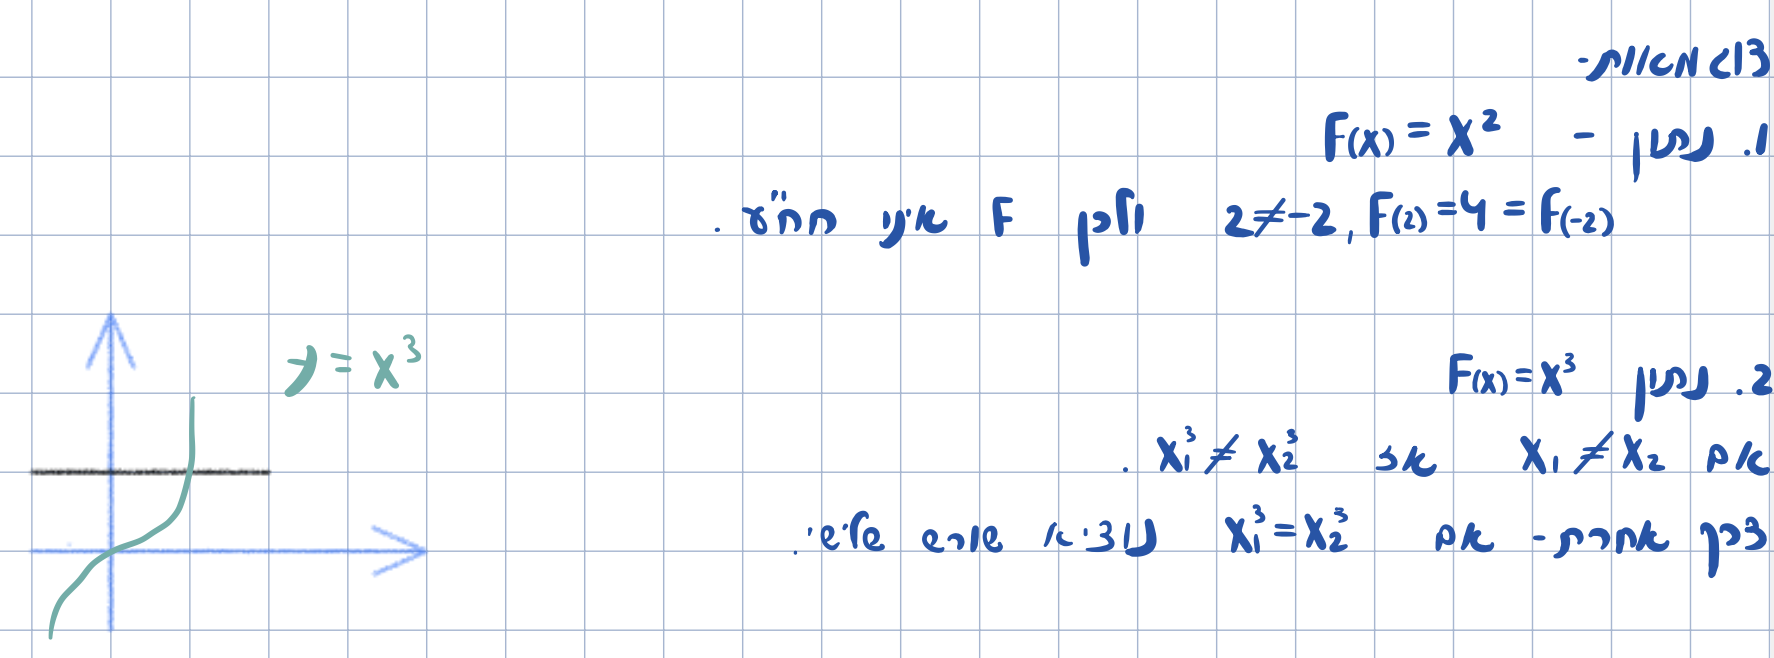 דוגמאות-
1. נתון - F(x) = x²
F(-2) = 4 = F(2) , 2 ≠ -2 ולכן F אינו חח״ע .
2. נתון F(x) = x³
אם x₁ ≠ x₂ אז x₁³ ≠ x₂³ .
דרך אחרת- אם x₁³ = x₂³ נוציא שורש שלישי .
y = x³